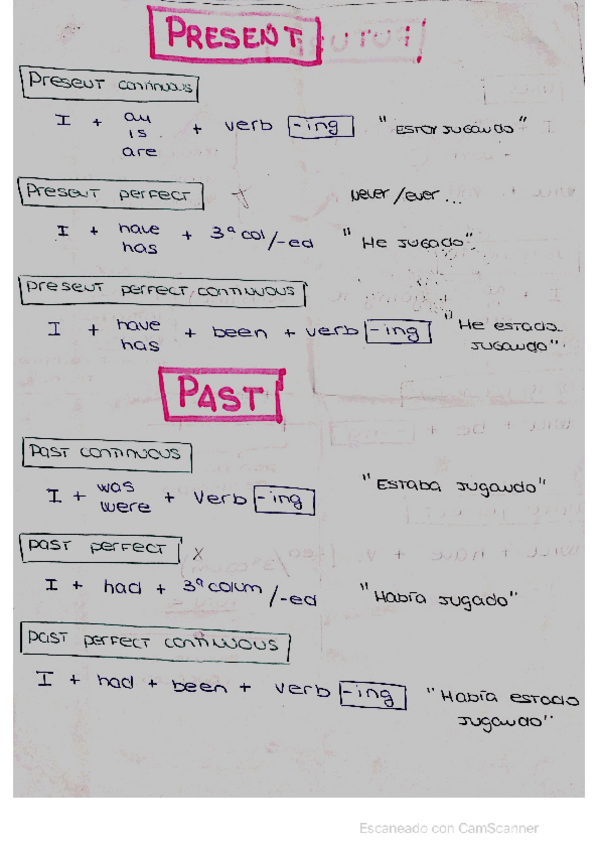 PRESENT
Present continuous
I + am + verb -ing "Estoy jugando"
is
are
Present perfect never/ever...
I + have + 3ª col/-ed "He jugado"
has
present perfect continuous
I + have + been + verb -ing "He estado
has jugando"
PAST
past continuous
I + was + verb -ing "Estaba jugando"
were
past perfect x
I + had + 3ª colum/-ed "Había jugado"
past perfect continuous
I + had + been + verb -ing "Había estado
jugando"
Escaneado con CamScanner